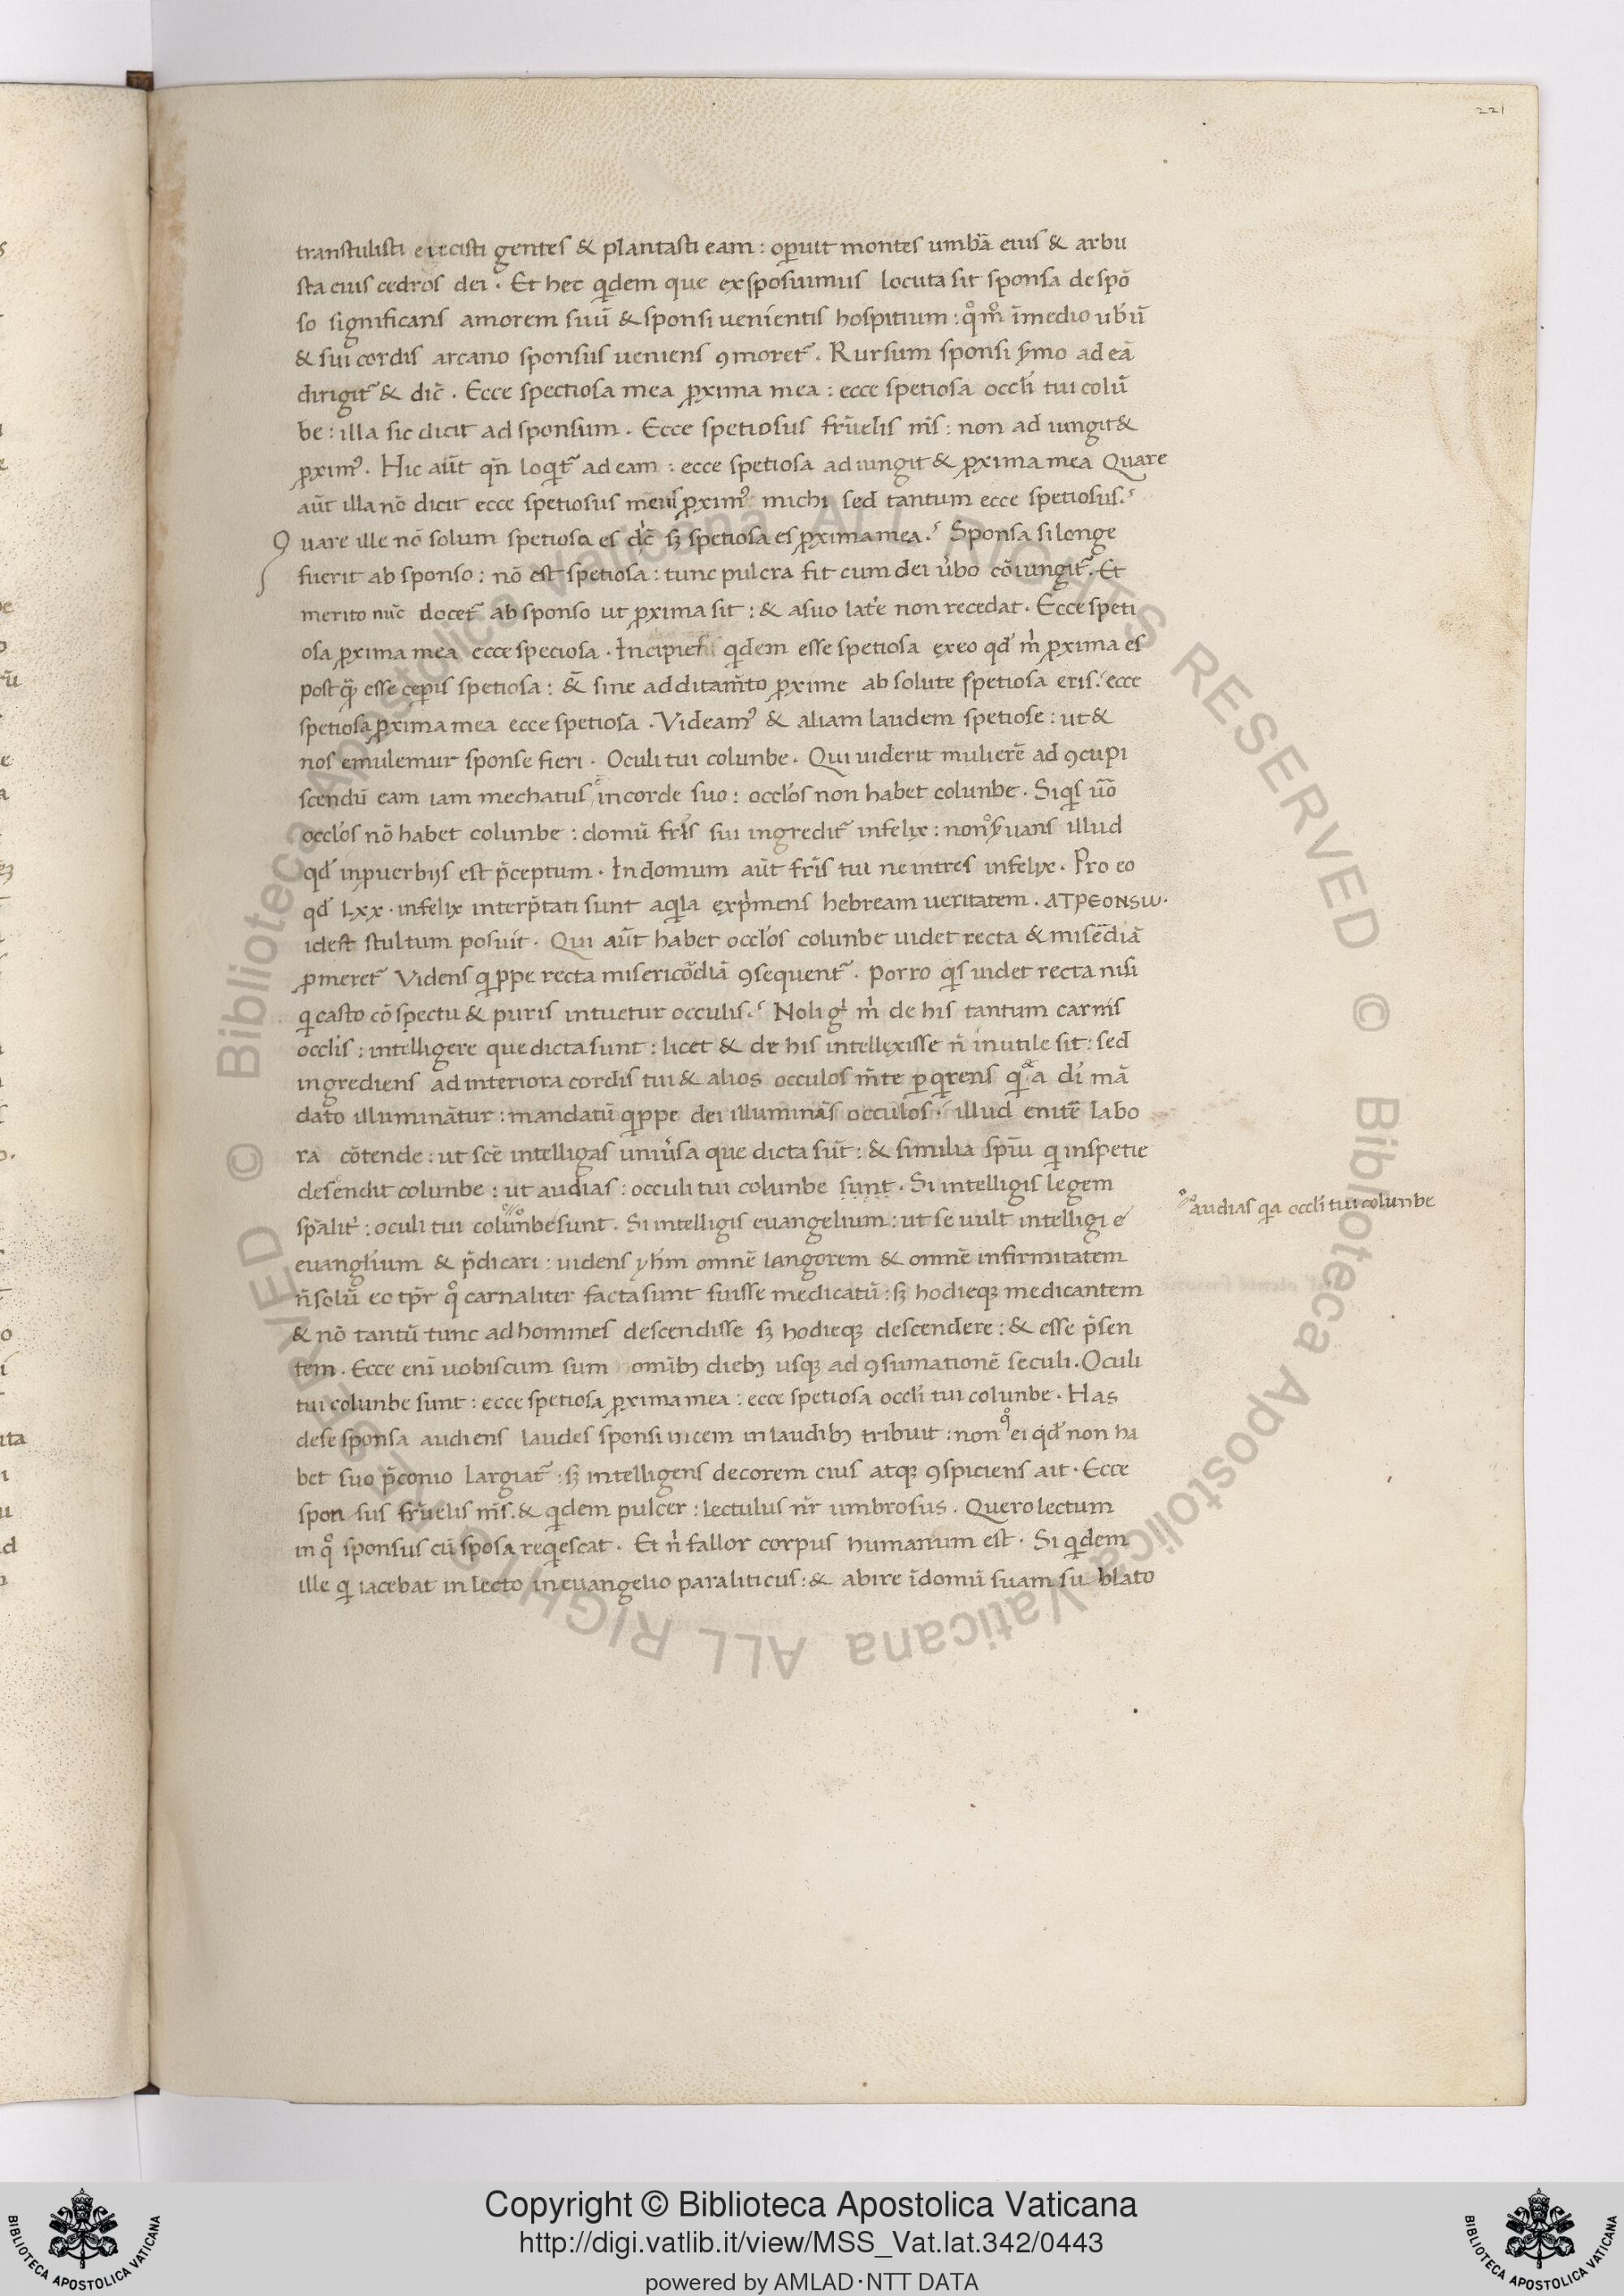 221
transtulisti eiecisti gentes & plantasti eam : operuit montes umbrā eius & arbu
sta eius cedros dei . Et hec qdem que exsposuimus locuta sit sponsa de spō
so significans amorem suū & sponsi uenientis hospitium : qͦmͦ ī medio ub'ū
& sui cordis arcano sponsus ueniens ꝯmoret᷑ . Rursum sponsi ẜmo ad eā
dirigit᷑ & dic̄ . Ecce spectiosa mea ꝓxima mea : ecce spetiosa occl'i tui colū
be : illa sic dicit ad sponsum . Ecce spetiosus fr̄uelis m̄s : non ad iungit &
ꝓximꝰ . Hic aūt qn̄ loqit᷑ ad eam : ecce spetiosa ad iungit & ꝓxima mea Quare
aūt illa nō dicit ecce spetiosus meus ꝓximꝰ michi sed tantum ecce spetiosus .ˢ
Q uare ille nō solum spetiosa es dic̄ sꝫ spetiosa es ꝓxima mea .ˢ Sponsa si longe
fuerit ab sponso : nō est spetiosa : tunc pulcra fit cum dei u'bo cōiungit᷑ . Et
merito nūc docet᷑ ab sponso ut ꝓxima sit : & a suo lat'e non recedat . Ecce speti
osa ꝓxima mea ecce speciosa . Incipies qdem esse spetiosa ęx eo qd' m' ꝓxima es
post q̄ꝫ esse cęperis spetiosa : & sine additam̄to ꝓxime ab solute spetiosa eris . ecce
spetiosa ꝓxima mea ecce spetiosa . Videamꝰ & aliam laudem spetiose : ut &
nos emulemur sponse fieri . Oculi tui colunbe . Qui uiderit mulierē ad ꝯcupi
scendū eam iam mechatus ē in corde suo : occl'os non habet colunbe . Si qis ūo
occl'os nō habet colunbe : domū fr̄is sui ingredit᷑ infelix : non oƀẜuans illud
qd' in ꝓuerbijs est p̄ceptum . In domum aūt fr̄is tui ne intres infelix . Pro eo
qd' Lxx . infelix interp̄tati sunt aqila ęxp'mens hebream ueritatem . ATPEONSω .
idest stultum posuit . Qui aūt habet occl'os colunbe uidet recta & miser̄diā
ꝓmeret᷑ Videns qippe recta misericōdiā ꝯsequent᷑ . Porro qis uidet recta nisi
qi casto cōspectu & puris intuetur occulis .ˢ Noli g' m' de his tantum carnis
occl'is : intelligere que dicta sunt : licet & de his intellęxisse n̄ inutile sit : sed
ingrediens ad interiora cordis tui & alios occulos m̄te ꝑqirens qi a d'i mā
dato illuminātur : mandatū qippe dei illuminās occulos . illud enitē labo
ra cōtende : ut scē intelligas uniu'sa que dicta sūt : & similia sp̄iu qi in spetie
desendit colunbe : ut audias : occuli tui colunbe sunt . Si intelligis legem
audias qa occl'i tui colunbe
sp̄alit' : oculi tui colunbe sunt . Si intelligis euangelium : ut se uult intelligi é
euangl'ium & p̄dicari : uidens yh̄m omnē langorem & omnē infirmitatem
n̄ solū eo tp̄r qͦ carnaliter facta sunt fuisse medicatū : sꝫ hodieqꝫ medicantem
& nō tantū tunc ad homines descendisse sꝫ hodieqꝫ descendere : & esse p̄sen
tem . Ecce enī uobiscum sum omībꝫ diebꝫ usqꝫ ad ꝯsumationē seculi . Oculi
tui colunbe sunt : ecce spetiosa ꝓxima mea : ecce spetiosa occl'i tui colunbe . Has
de se sponsa audiens laudes sponsi in cem in laudibꝫ tribuit : non qͦ ei qd' non ha
bet suo p̄conio largiat᷑ : sꝫ intelligens decorem eius atqꝫ ꝯspiciens ait . Ecce
spon sus fr̄uelis m̄s . & qidem pulcer : lectulus nr̄ umbrosus . Quero lectum
in qͦ sponsus cū sposa reqiescat . Et n' fallor corpus humanum est . Si qidem
ille qi iacebat in lecto in euangelio paraliticus : & abire ī domū suam su blato
Copyright © Biblioteca Apostolica Vaticana
http://digi.vatlib.it/view/MSS_Vat.lat.342/0443
powered by AMLAD·NTT DATA
BIBLIOTECA APOSTOLICA VATICANA
BIBLIOTECA APOSTOLICA VATICANA
© Biblioteca Apostolica Vaticana ALL RIGHTS RESERVED © Biblioteca Apostolica Vaticana ALL RIGHTS RESERVED